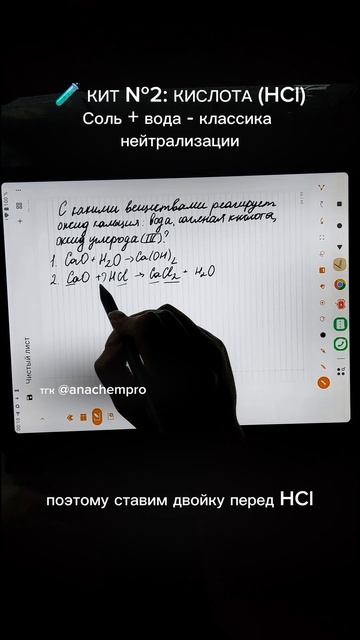 🧪 КИТ №2: КИСЛОТА (HCl)
Соль + вода - классика
нейтрализации
С какими веществами реагирует
оксид кальция: вода, соляная кислота,
оксид углерода (IV)?
1. CaO + H₂O → Ca(OH)₂
2. CaO + 2HCl → CaCl₂ + H₂O
Чистый лист
тгк @anachempro
поэтому ставим двойку перед HCl